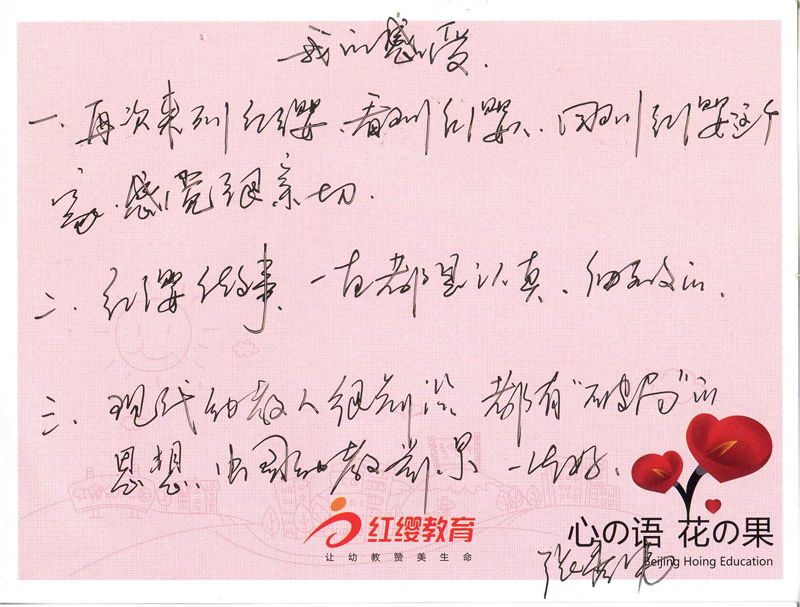 我的感受.
一、再次来到红缨、看到红缨、回到红缨这个
家,感觉很亲切.
二、红缨做事、一直都是认真、细致的.
三、现代幼教人很前沿,都有“破局”的
思想,中国幼教前景一片好.
红缨教育
让幼教赞美生命
心の语 花の果
Beijing Hoing Education